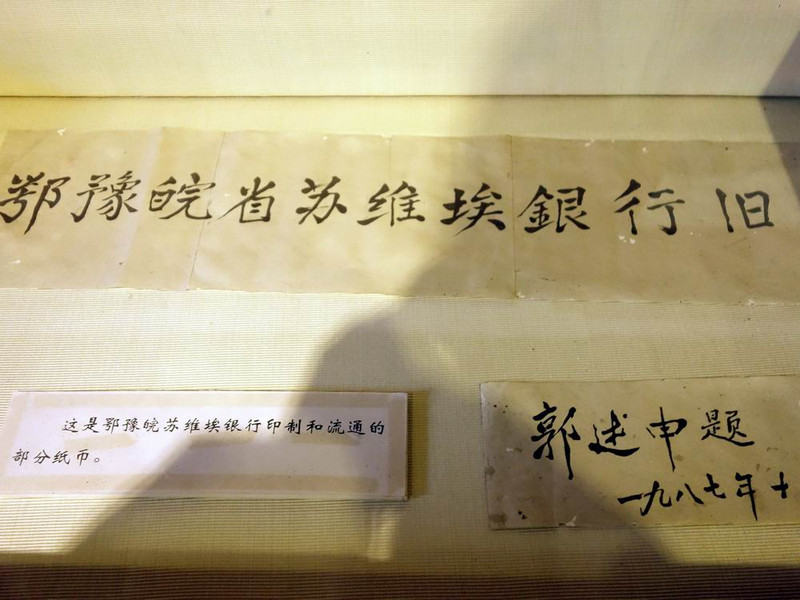 鄂豫皖省苏维埃銀行旧
这是鄂豫皖苏维埃银行印制和流通的
部分纸币。
郭述申题
一九八七年十